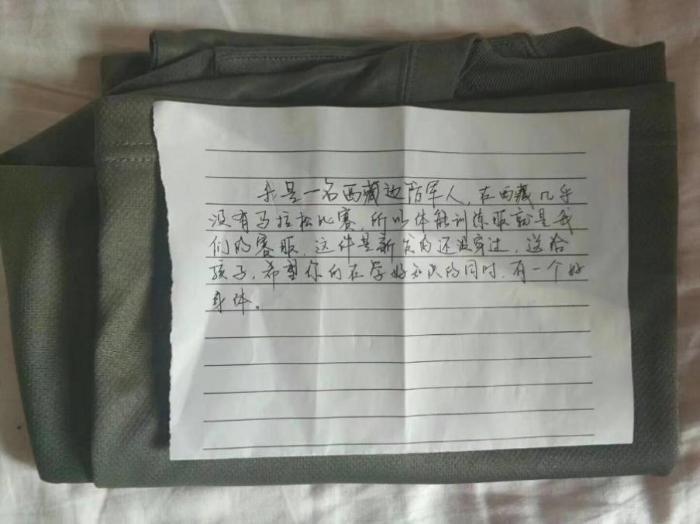 我是一名西藏边防军人，在西藏几乎
没有马拉松比赛，所以体能训练服就是我
们的赛服，这件是新发的还没穿过，送给
孩子，希望你们在学好知识的同时，有一个好
身体。